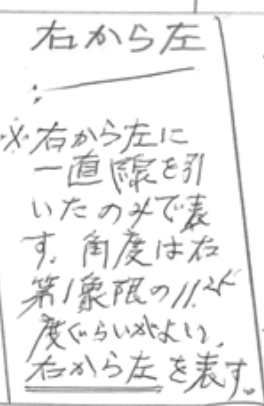 右から左
※右から左に
一直線を引
いたのみで表
す。角度は右
第1象限の11.25
度ぐらいがよい。
右から左を表す。